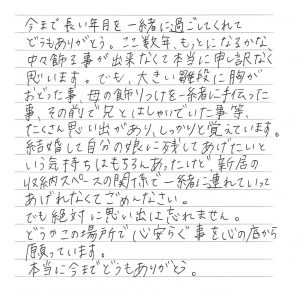 今まで長い年月を一緒に過ごしてくれて
どうもありがとう。ここ数年、もっとになるかな、
中々飾る事が出来なくて本当に申し訳なく
思います。でも、大きい雛段に胸が
おどった事、母の飾りつけを一緒に手伝った
事、その前で兄とはしゃいでいた事等、
たくさん思い出があり、しっかりと覚えています。
結婚して自分の娘に残してあげたいと
いう気持ちはもちろんあったけど、新居の
収納スペースの関係で一緒に連れていって
あげれなくてごめんなさい。
でも絶対に思い出は忘れません。
どうかこの場所で心安らぐ事を心の底から
願っています。
本当に今までどうもありがとう。